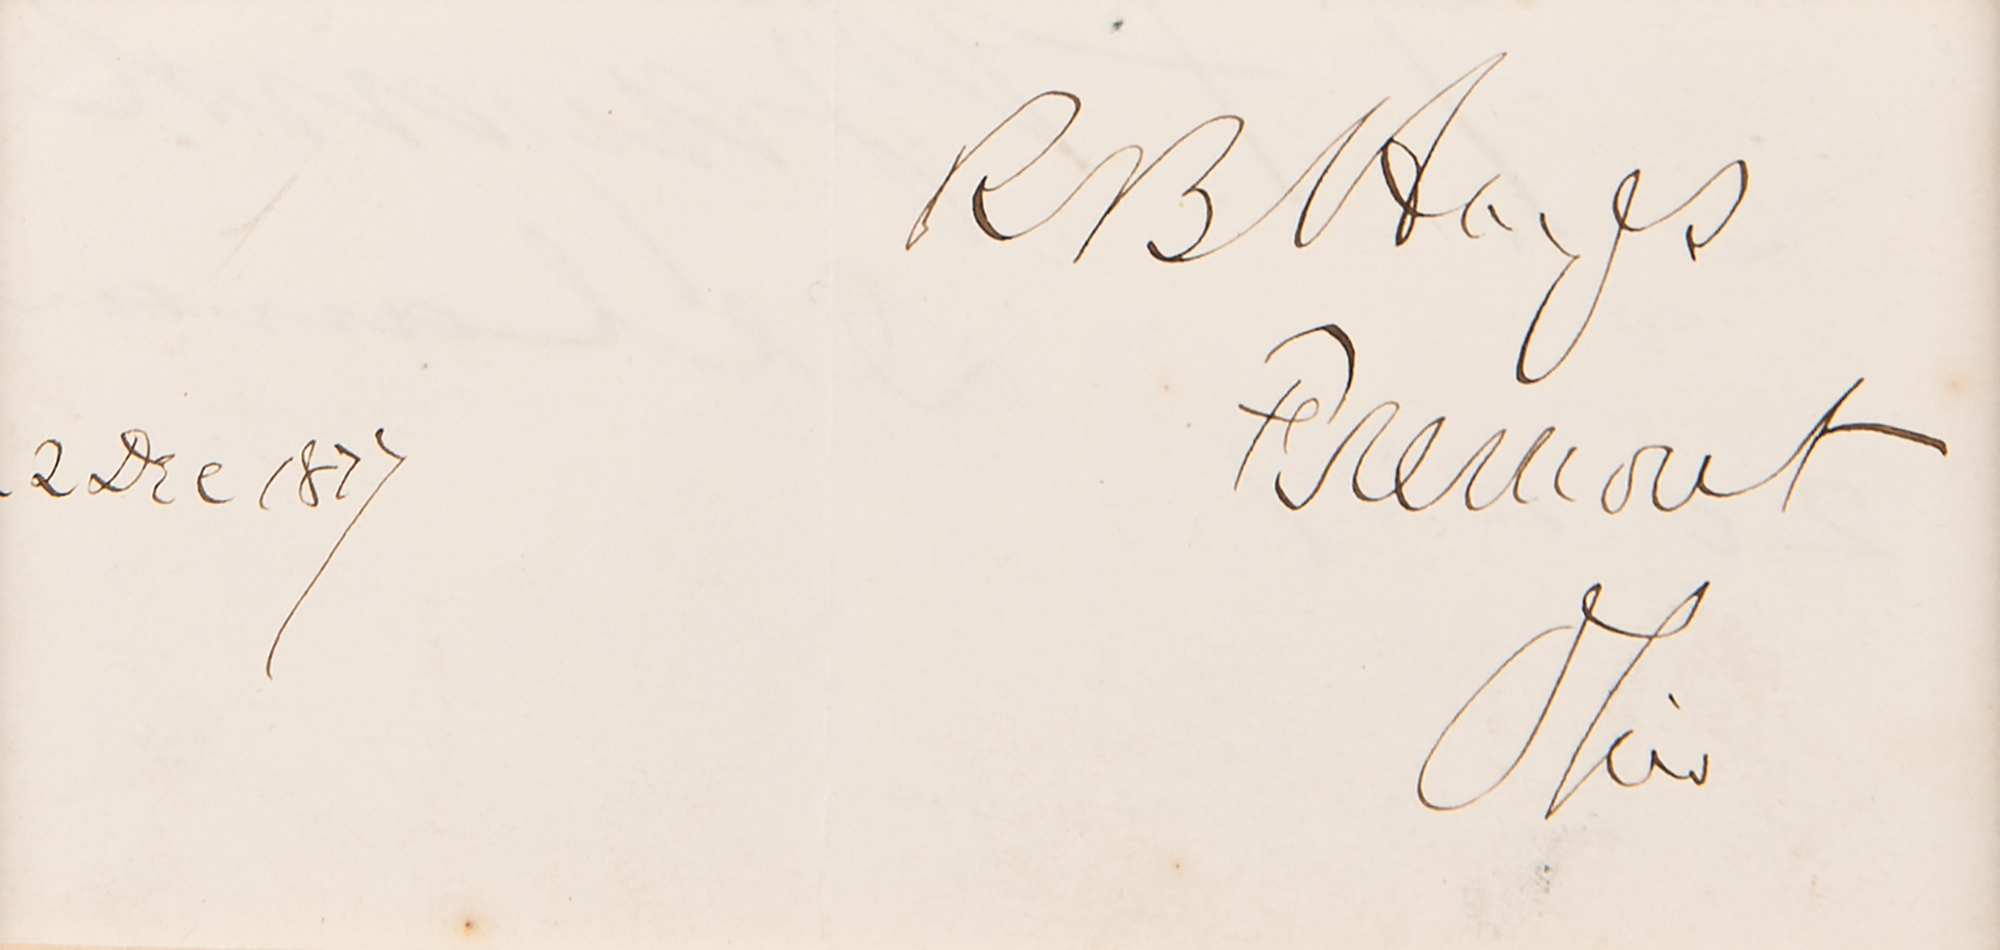 R B Hayes
Fremont
2 Dec 1877
Ohio